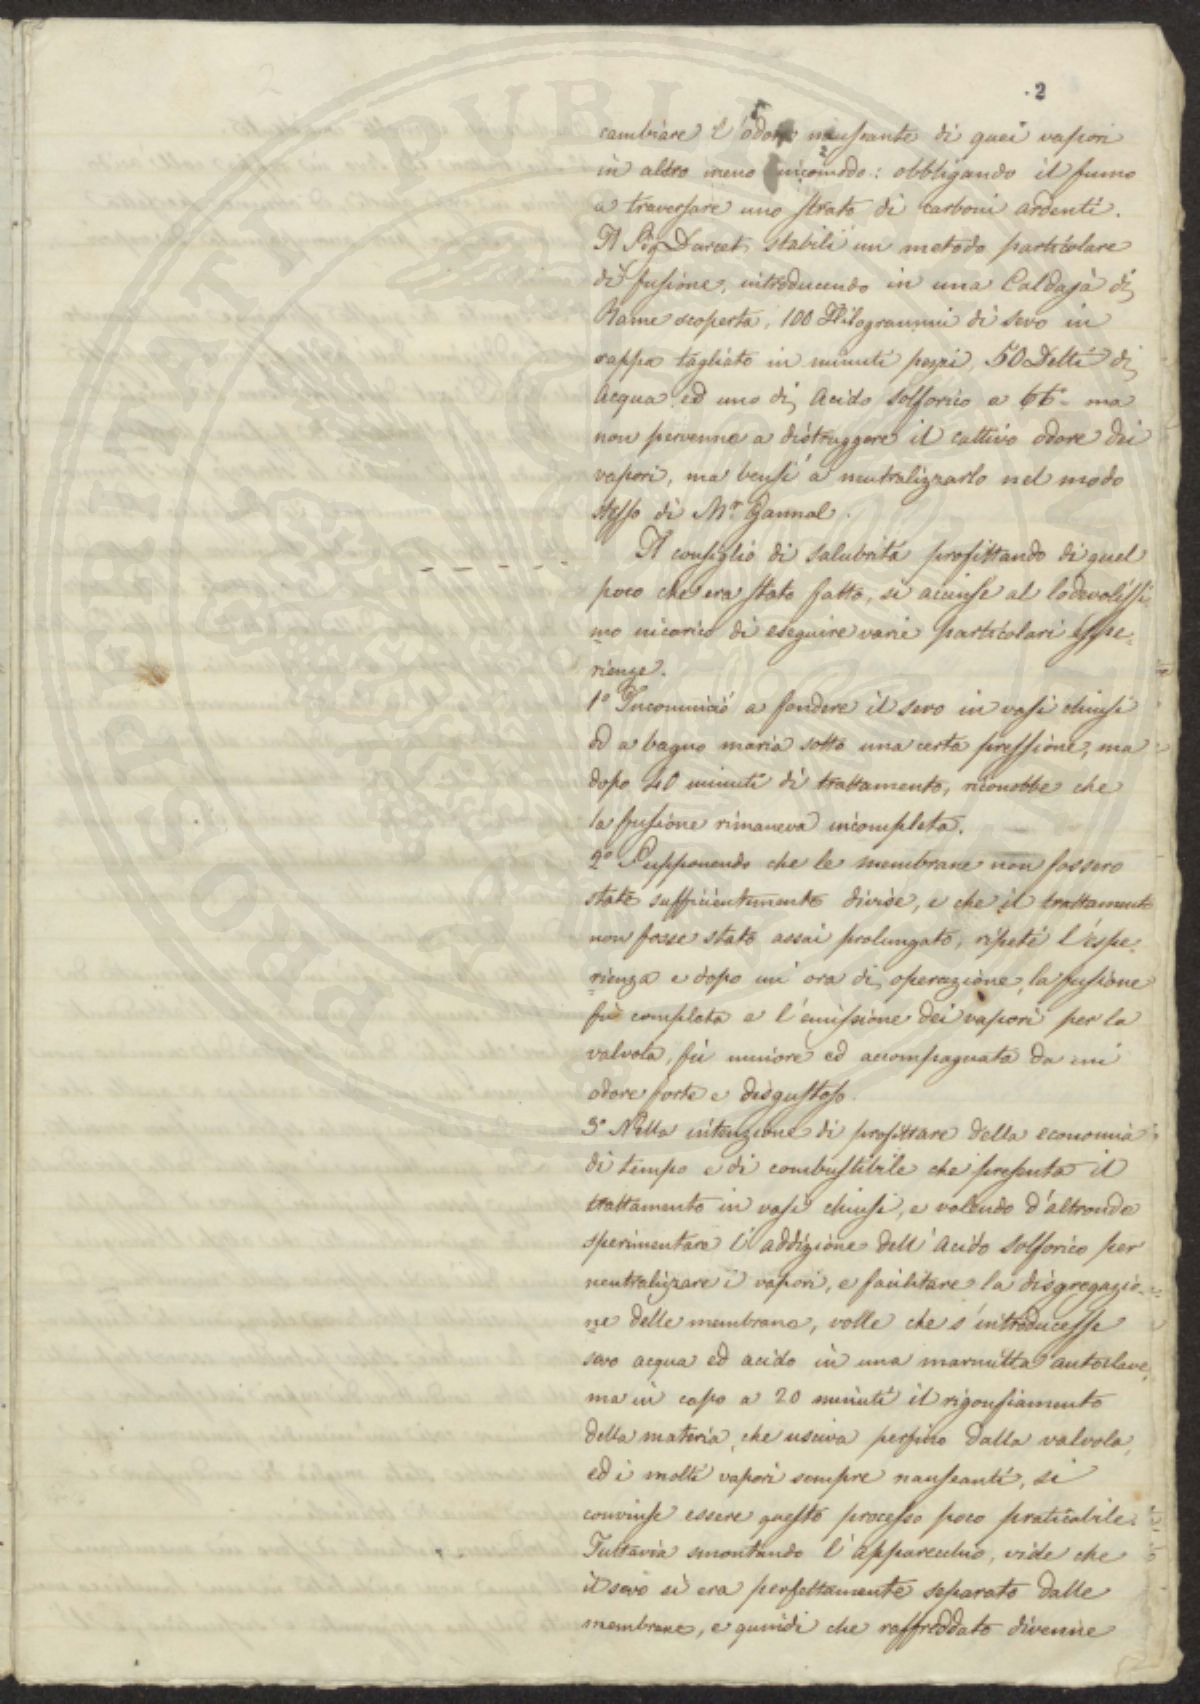 2
cambiare l'odore nauseante di quei vapori
in altro meno incomodo: obbligando il fumo
a traversare uno strato di carboni ardenti.
Il Sig. Darcet, stabilì un metodo particolare
di fusione, introducendo in una Caldaja di
Rame scoperta, 100 Kilogrammi di sevo in
rappa tagliato in minuti pezzi, 50 Detti di
Acqua ed uno di Acido solforico a 66° ma
non pervenne a distruggere il cattivo odore dei
vapori, ma bensì a neutralizzarlo nel modo
stesso di Mr. Gannal.
Il consiglio di salubrità profittando di quel
poco che era stato fatto, si accinse al lodevolissi
mo incarico di eseguire varie particolari espe
rienze.
1° Incominciò a fondere il sevo in vasi chiusi
ed a bagno maria sotto una certa pressione, ma
dopo 40 minuti di trattamento, riconobbe che
la fusione rimaneva incompleta.
2° Supponendo che le membrane non fossero
state sufficientemente divise, e che il trattamento
non fosse stato assai prolungato, ripeté l'espe
rienza e dopo un'ora di operazione, la fusione
fù completa e l'emissione dei vapori per la
valvola, fù minore ed accompagnata da un
odore forte e disgustoso.
3° Nella intenzione di profittare della economia
di tempo e di combustibile che presenta il
trattamento in vasi chiusi, e volendo d'altronde
sperimentare l'addizione dell'Acido solforico per
neutralizzare i vapori, e facilitare la disgregazio
ne delle membrane, volle che s'introducesse
sevo acqua ed acido in una marmitta autoclave,
ma in capo a 20 minuti il rigonfiamento
della materia, che usciva perfino dalla valvola,
ed i molti vapori sempre nauseanti, si
convinse essere questo processo poco praticabile.
Tuttavia smontando l'apparecchio, vide che
il sevo si era perfettamente separato dalle
membrane, e quindi che raffreddato divenne